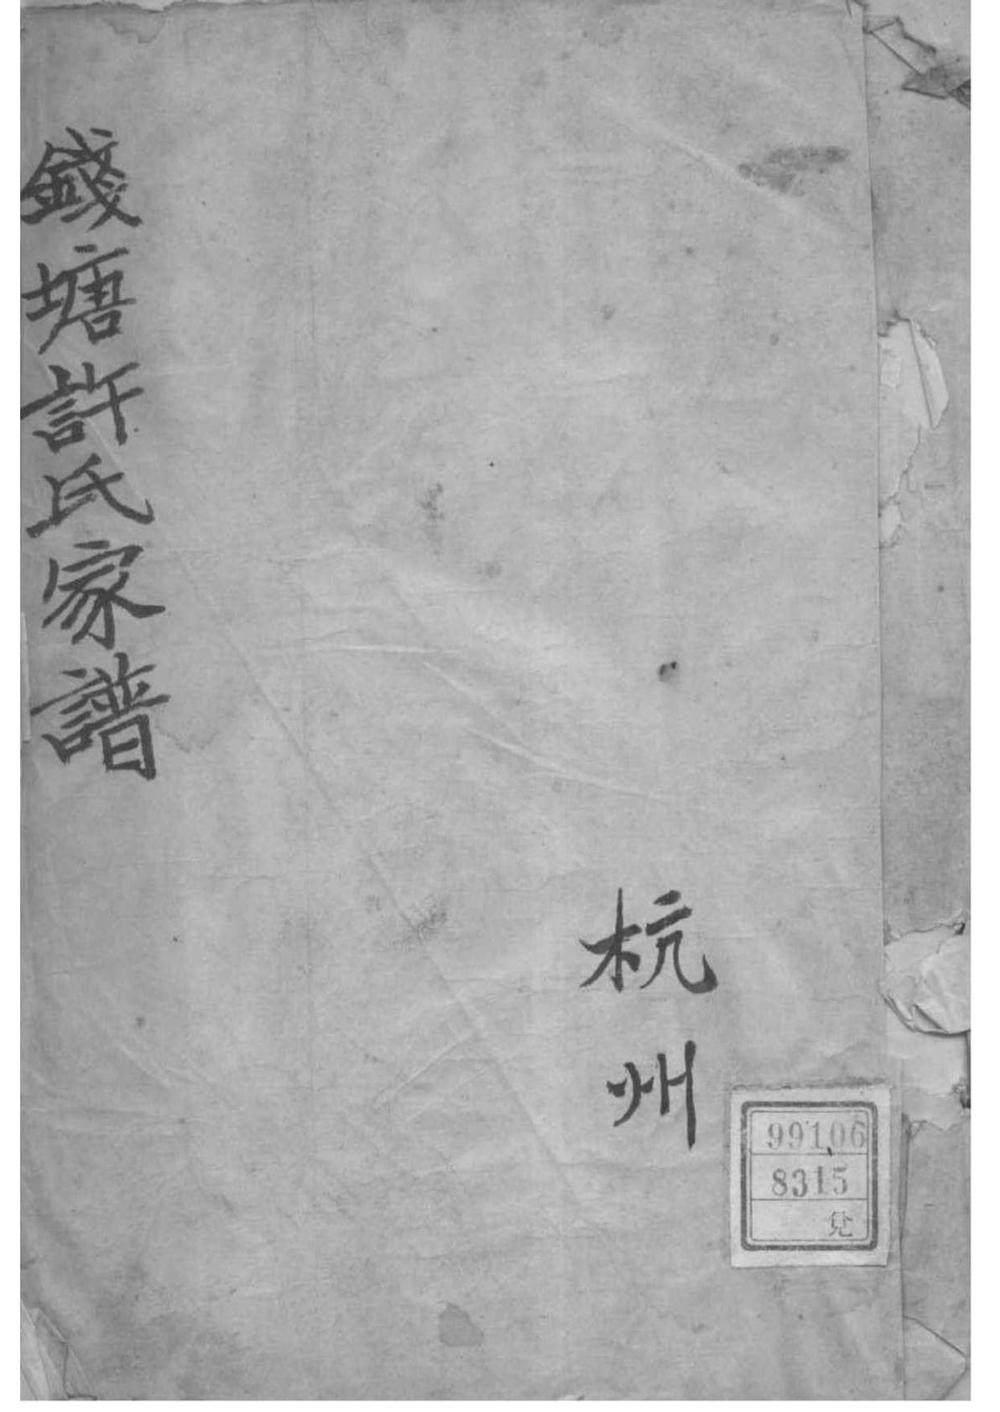 錢塘許氏家譜
杭州
99106
8315
兌